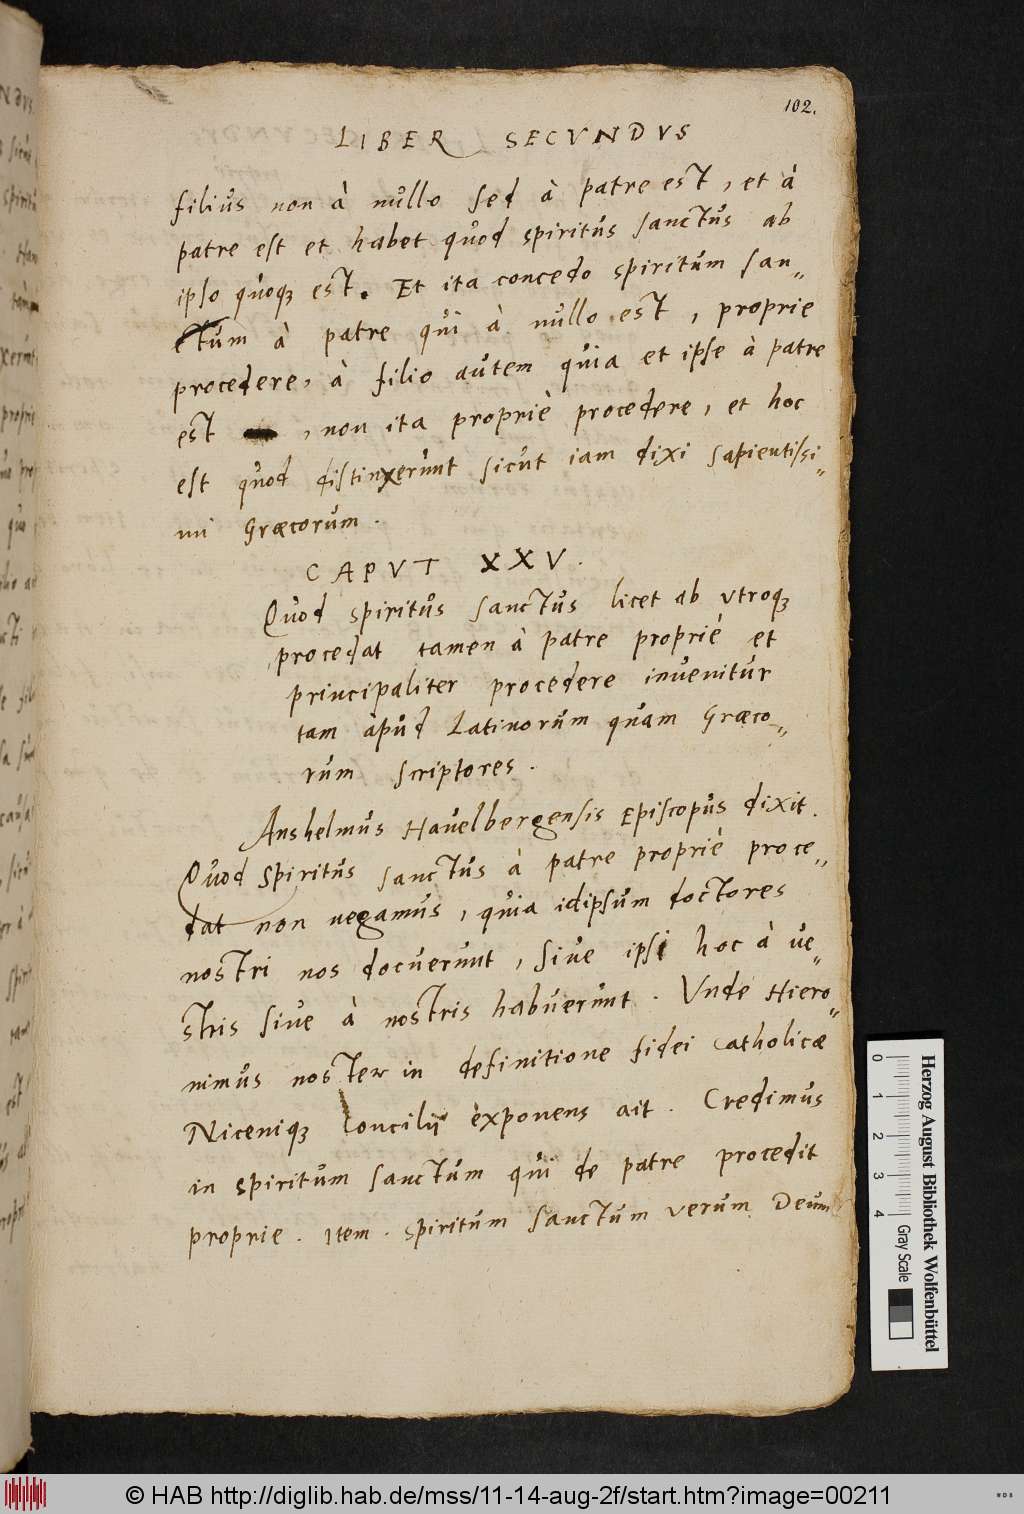 102.
LIBER SECVNDVS
filius non à nullo sed à patre est, et à
patre est et habet quod spiritus sanctus ab
ipso quoqꝫ est. Et ita concedo spiritum san„
ctum à patre qui à nullo est, proprie
procedere, à filio autem quia et ipse à patre
est , non ita propriè procedere, et hoc
est quod distinxerunt sicut iam dixi sapientissi„
mi Græcorum.
CAPVT XXV.
Quod spiritus sanctus licet ab vtroqꝫ
procedat tamen à patre propriè et
principaliter procedere inuenitur
tam apud Latinorum quam Græco„
rum scriptores.
Anshelmus Hauelbergensis Episcopus dixit.
Quod Spiritus sanctus à patre propriè proce„
dat non negamus, quia idipsum doctores
nostri nos docuerunt, siue ipsi hoc à ve„
stris siue à nostris habuerunt. Vnde Hiero„
nimus noster in definitione fidei catholicæ
Niceniqꝫ Concilij exponens ait. Credimus
in spiritum sanctum qui de patre procedit
proprie. Item. spiritum sanctum verum Deum
0 1 2 3 4
Herzog August Bibliothek Wolfenbüttel
Gray Scale
© HAB http://diglib.hab.de/mss/11-14-aug-2f/start.htm?image=00211